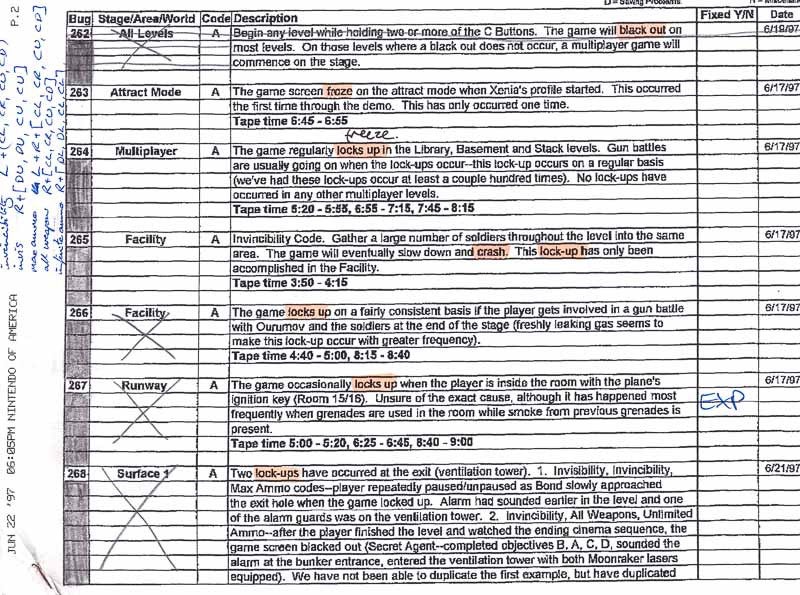 D = Saving Problems
Bug Stage/Area/World Code Description Fixed Y/N Date
262 All Levels A Begin any level while holding two or more of the C Buttons. The game will black out on 6/19/97
most levels. On those levels where a black out does not occur, a multiplayer game will
commence on the stage.
263 Attract Mode A The game screen froze on the attract mode when Xenia's profile started. This occurred 6/17/97
the first time through the demo. This has only occurred one time.
Tape time 6:45 - 6:55
freeze.
264 Multiplayer A The game regularly locks up in the Library, Basement and Stack levels. Gun battles 6/17/97
are usually going on when the lock-ups occur--this lock-up occurs on a regular basis
(we've had these lock-ups occur at least a couple hundred times). No lock-ups have
occurred in any other multiplayer levels.
Tape time 5:20 - 5:55, 6:55 - 7:15, 7:45 - 8:15
265 Facility A Invincibility Code. Gather a large number of soldiers throughout the level into the same 6/17/97
area. The game will eventually slow down and crash. This lock-up has only been
accomplished in the Facility.
Tape time 3:50 - 4:15
266 Facility A The game locks up on a fairly consistent basis if the player gets involved in a gun battle 6/17/97
with Ourumov and the soldiers at the end of the stage (freshly leaking gas seems to
make this lock-up occur with greater frequency).
Tape time 4:40 - 5:00, 8:15 - 8:40
267 Runway A The game occasionally locks up when the player is inside the room with the plane's 6/17/97
ignition key (Room 15/16). Unsure of the exact cause, although it has happened most
EXP
frequently when grenades are used in the room while smoke from previous grenades is
present.
Tape time 5:00 - 5:20, 6:25 - 6:45, 8:40 - 9:00
268 Surface 1 A Two lock-ups have occurred at the exit (ventilation tower). 1. Invisibility, Invincibility, 6/21/97
Max Ammo codes--player repeatedly paused/unpaused as Bond slowly approached
the exit hole when the game locked up. Alarm had sounded earlier in the level and one
of the alarm guards was on the ventilation tower. 2. Invincibility, All Weapons, Unlimited
Ammo--after the player finished the level and watched the ending cinema sequence, the
game screen blacked out (Secret Agent--completed objectives B, A, C, D, sounded the
alarm at the bunker entrance, entered the ventilation tower with both Moonraker lasers
equipped). We have not been able to duplicate the first example, but have duplicated
JUN 22 '97 06:05PM NINTENDO OF AMERICA P.2
invincibility L + (CL, CR, CU, CD)
invis R+[DU, PU, CU, CU]
max ammo L+R+[CL, CR, CU, CD]
all weapon R+[CL, CR, CU, CD]
infinite ammo R+[DL, DL, CL, CL]